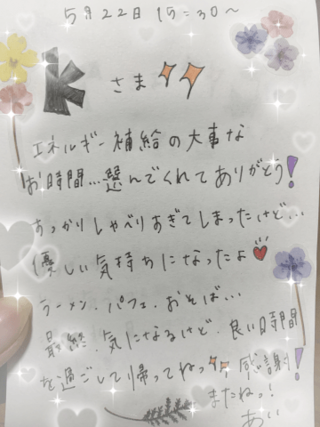 5月22日 15:30〜
さま
エネルギー補給の大事な
お時間…選んでくれてありがとう!
あっかりしゃべりすぎてしまったけど…
優しい気持ちになったよ
ラーメン、パフェ、おそば…
最終、気になるけど、良い時間
を過ごして帰ってねっ 感謝!
またねっ!
あい